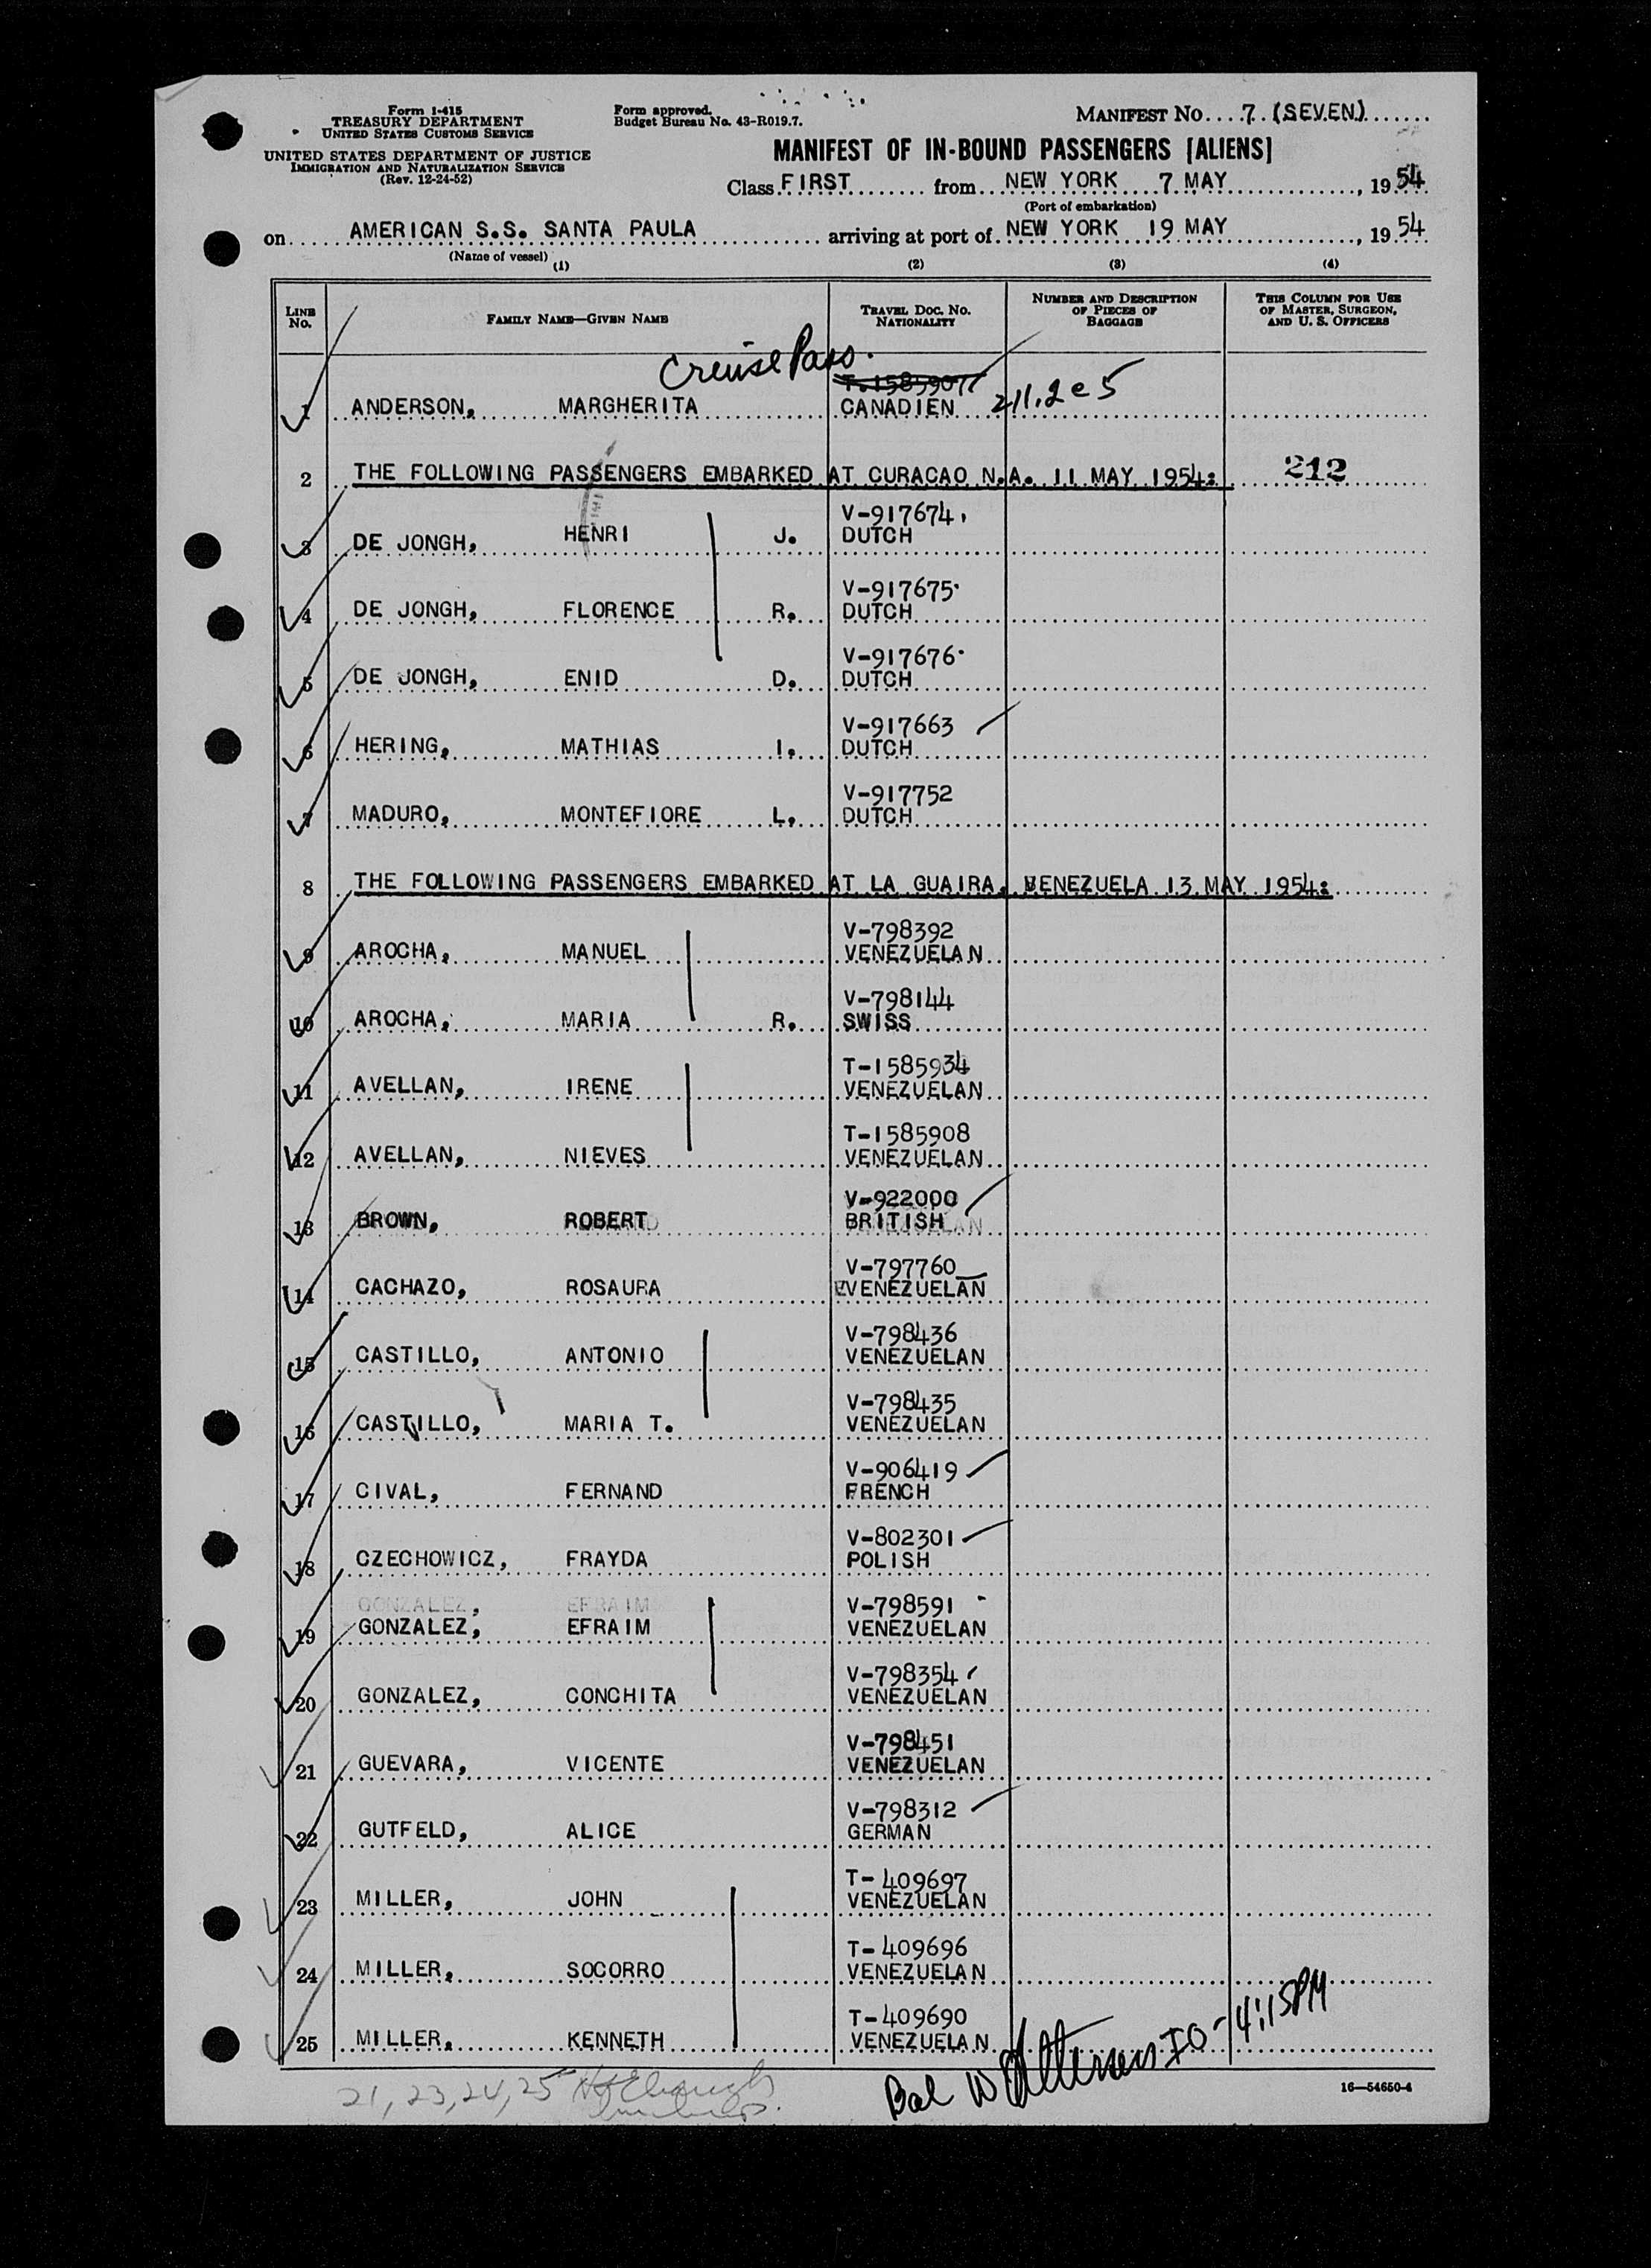 Form I-415
TREASURY DEPARTMENT
UNITED STATES CUSTOMS SERVICE
UNITED STATES DEPARTMENT OF JUSTICE
IMMIGRATION AND NATURALIZATION SERVICE
(Rev. 12-24-52)
Form approved.
Budget Bureau No. 43-R019.7.
MANIFEST NO. 7 (SEVEN)
MANIFEST OF IN-BOUND PASSENGERS [ALIENS]
Class FIRST from NEW YORK 7 MAY, 1954
(Port of embarkation)
on AMERICAN S.S. SANTA PAULA arriving at port of NEW YORK 19 MAY, 1954
(Name of vessel)
(1) (2) (3) (4)
LINE NO. FAMILY NAME—GIVEN NAME TRAVEL DOC. NO. NATIONALITY NUMBER AND DESCRIPTION OF PIECES OF BAGGAGE THIS COLUMN FOR USE OF MASTER, SURGEON, AND U. S. OFFICERS
Creuise Pass.
T-1585907
1 ANDERSON, MARGHERITA CANADIEN 211.2e5
2 THE FOLLOWING PASSENGERS EMBARKED AT CURACAO N.A. 11 MAY 1954: 212
V-917674
3 DE JONGH, HENRI J. DUTCH
V-917675
4 DE JONGH, FLORENCE R. DUTCH
V-917676
5 DE JONGH, ENID D. DUTCH
V-917663
6 HERING, MATHIAS I. DUTCH
V-917752
7 MADURO, MONTEFIORE L. DUTCH
8 THE FOLLOWING PASSENGERS EMBARKED AT LA GUAIRA, VENEZUELA 13 MAY 1954:
V-798392
9 AROCHA, MANUEL VENEZUELAN
V-798144
10 AROCHA, MARIA R. SWISS
T-1585934
11 AVELLAN, IRENE VENEZUELAN
T-1585908
12 AVELLAN, NIEVES VENEZUELAN
V-922000
13 BROWN, ROBERT BRITISH
V-797760
14 CACHAZO, ROSAURA VENEZUELAN
V-798436
15 CASTILLO, ANTONIO VENEZUELAN
V-798435
16 CASTILLO, MARIA T. VENEZUELAN
V-906419
17 CIVAL, FERNAND FRENCH
V-802301
18 CZECHOWICZ, FRAYDA POLISH
GONZALEZ, EFRAIM V-798591
19 GONZALEZ, EFRAIM VENEZUELAN
V-798354
20 GONZALEZ, CONCHITA VENEZUELAN
V-798451
21 GUEVARA, VICENTE VENEZUELAN
V-798312
22 GUTFELD, ALICE GERMAN
T-409697
23 MILLER, JOHN VENEZUELAN
T-409696
24 MILLER, SOCORRO VENEZUELAN
T-409690
25 MILLER, KENNETH VENEZUELAN
Bal W IO - 4:15PM
21, 23, 24, 25
16—54650-4